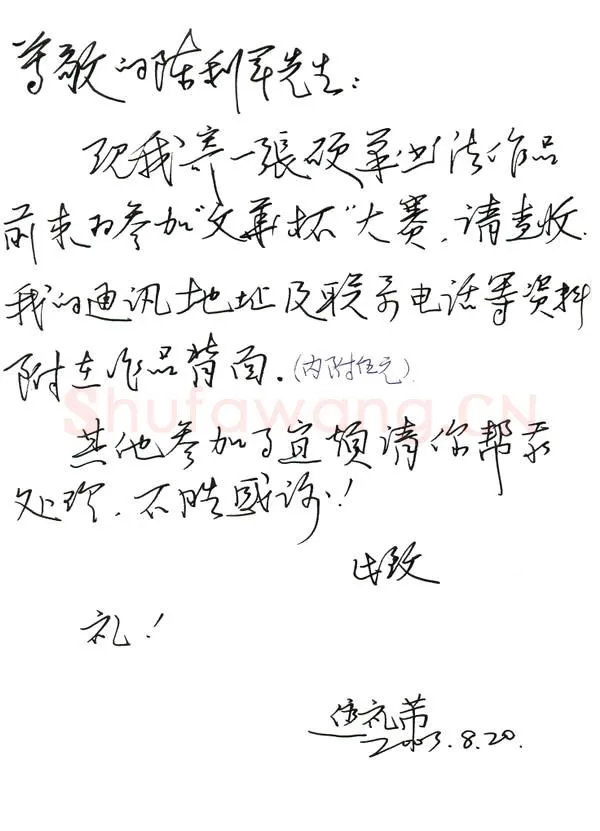 尊敬的陈利军先生：
现我寄一張硬筆书法作品
前来为参加"文華杯"大赛,请查收.
我的通讯地址及联系电话等资料
附在作品背面.(内附伍元)
Shufawang.CN
其他参加事宜烦请你帮我
处理,不胜感谢!
此致
礼!
2003.8.20.